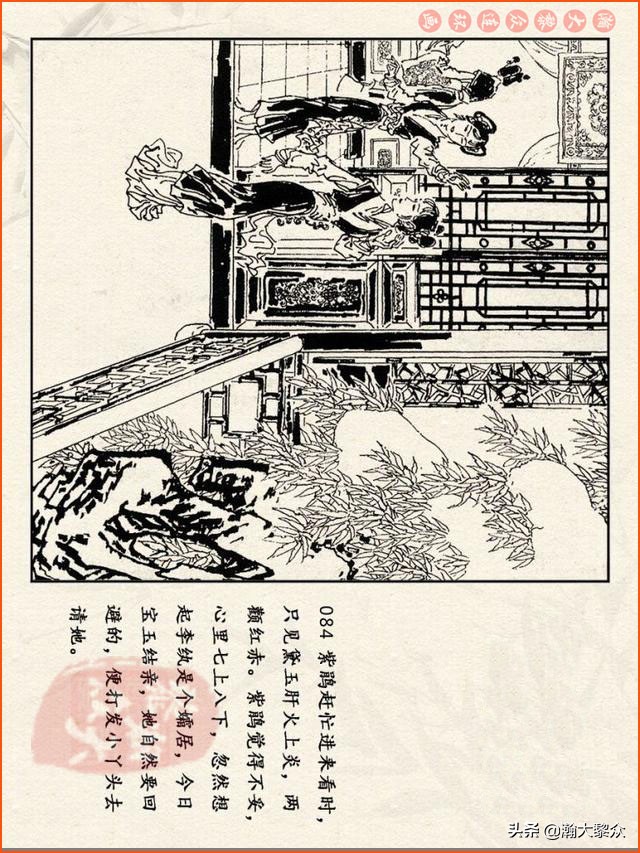 瀚大黎众连环画
084 紫鹃赶忙进来看时，
只见黛玉肝火上炎，两
颧红赤。紫鹃觉得不妥，
心里七上八下，忽然想
起李纨是个孀居，今日
宝玉结亲，她自然要回
避的，便打发小丫头去
请她。
头条 @瀚大黎众